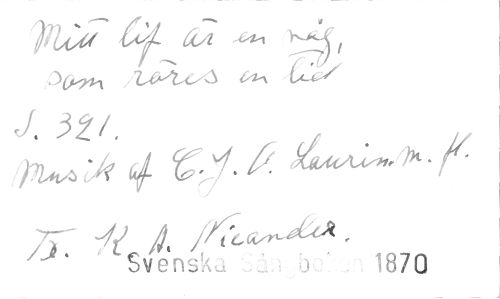 Mitt lif är en våg,
som röres en tid
S. 321.
Musik af C. J. O. Laurin. m. fl.
Tr. K. A. Nicander.
Svenska Sångboken 1870